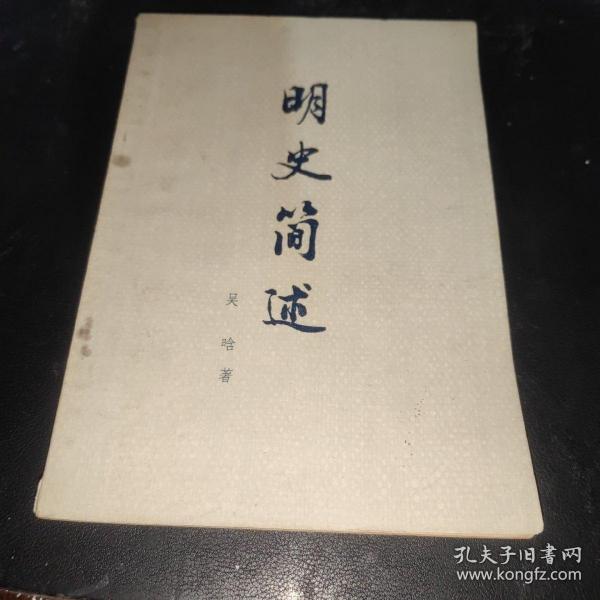 明史简述
吴晗著
孔夫子旧書网
www.kongfz.com